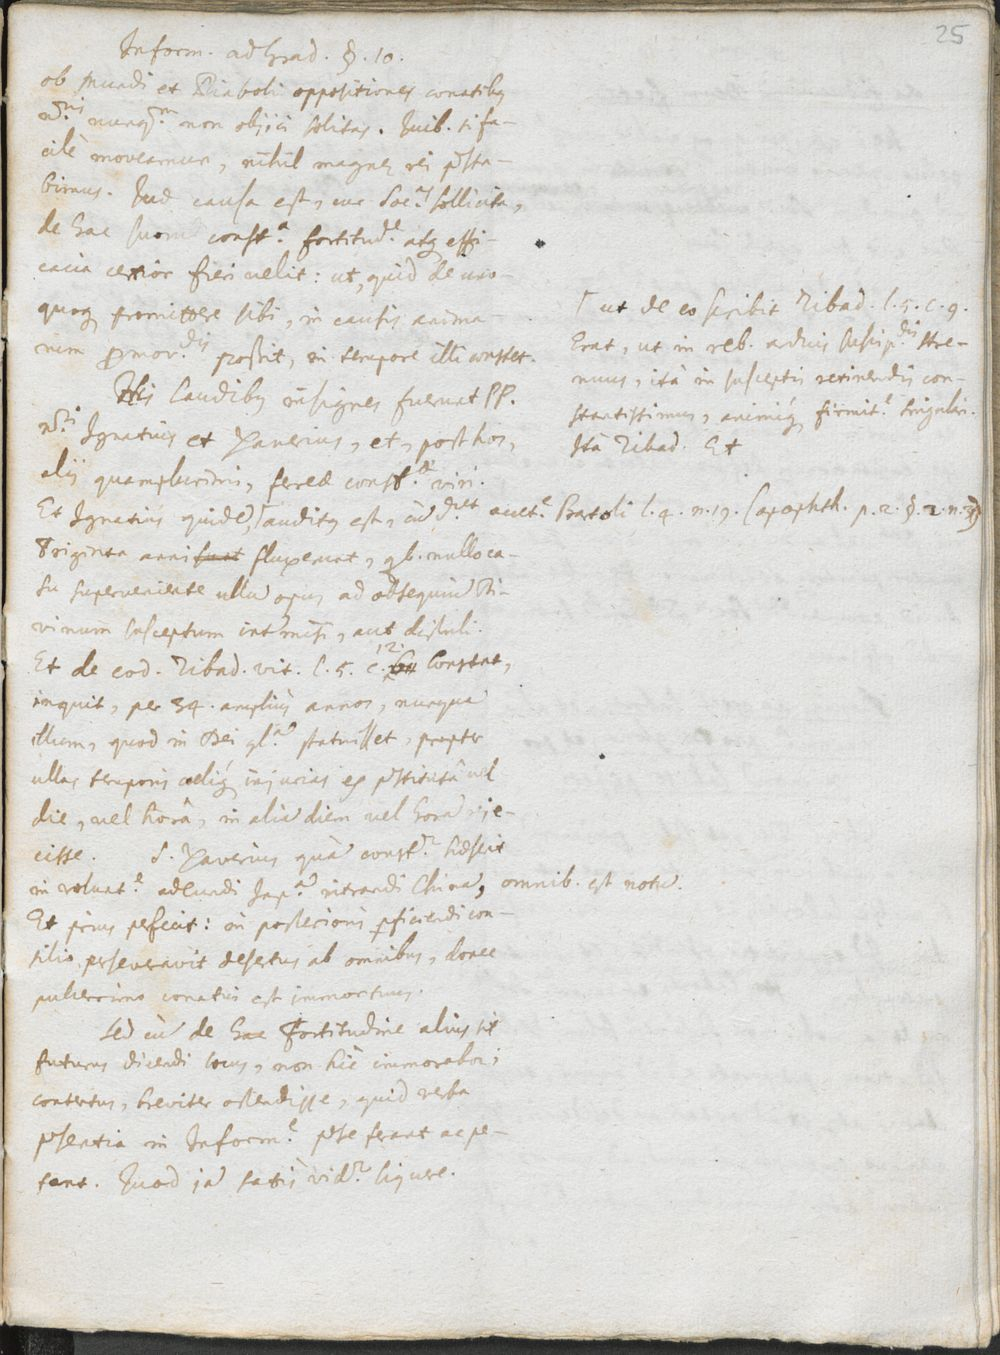 25
Inform. ad Grad. §. 10.
ob Mundi et Diaboli oppositiones conatibus
n.ris nunq.m non objici solitas. Quib. si fa-
cilè moveamur, nihil magnę rei pręsta-
bimus. Quae causa est, cur Soc.s sollicita,
de hac suorum const.a fortitud.e atq effi-
cacia certior fieri velit: ut, quid de uno-
quoq promittere sibi, in causis anima-
rum promov.dis possit, in tempore illi constet.
His laudibus insignes fuerunt PP.
n.ri Ignatius et Xaverius, et, post hos,
alij quamplurimi, ferreae const.ae viri.
Et Ignatius quidē, ⌈auditus est, cū d.ret auct.e Bartoli l. 4. n. 19. (apophth. p. 2. §. 2. n. 3)
Triginta anni fluxerunt, q.b. nullo ca-
su superveniente ullū opus ad obsequiū Di-
vinum susceptum intermisi, aut distuli.
Et de eod. Ribad. vit. l. 5. c. 12. Constat,
inquit, per 34. amplius annos, nunquā
illum, quod in Dei gl.am statuisset, propter
ullas temporis caeliq injurias ex pręstitutâ vel
die, vel horâ, in aliā diem vel horā reje-
cisse. S. Xaverius quā const.a haeserit
in volunt.e adeundi Jap.am intrandi Chinā, omnib. est notū.
Et prius perfecit: in posterioris perficiendi con-
silio perseveravit desertus ab omnibus, donec
pulcerrimo conatui est immortuus.
Sed cū de hac Fortitudine alius sit
futurus dicendi locus, non hîc immorabor;
contentus, breviter ostendisse, quid verba
pręsentia in Inform.e pręse ferant ac pe-
tant. Quod jā satis vid.r liquere.
⌈ ut de eo scribit Ribad. l. 5. c. 9.
Erat, ut in reb. arduis suscip.dis stre-
nuus, ità in susceptis retinendis con-
stantissimus, animiq firmit.e singulari.
Ità Ribad. Et